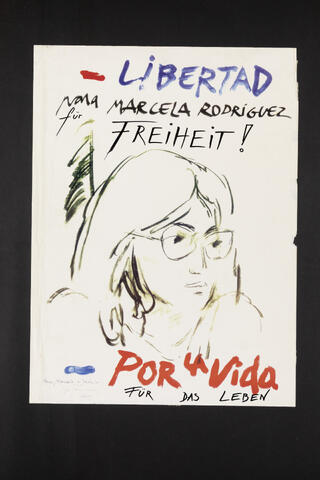 - LIBERTAD
para MARCELA RODRÍGUEZ
für FREIHEIT!
POR LA VIDA
FÜR DAS LEBEN